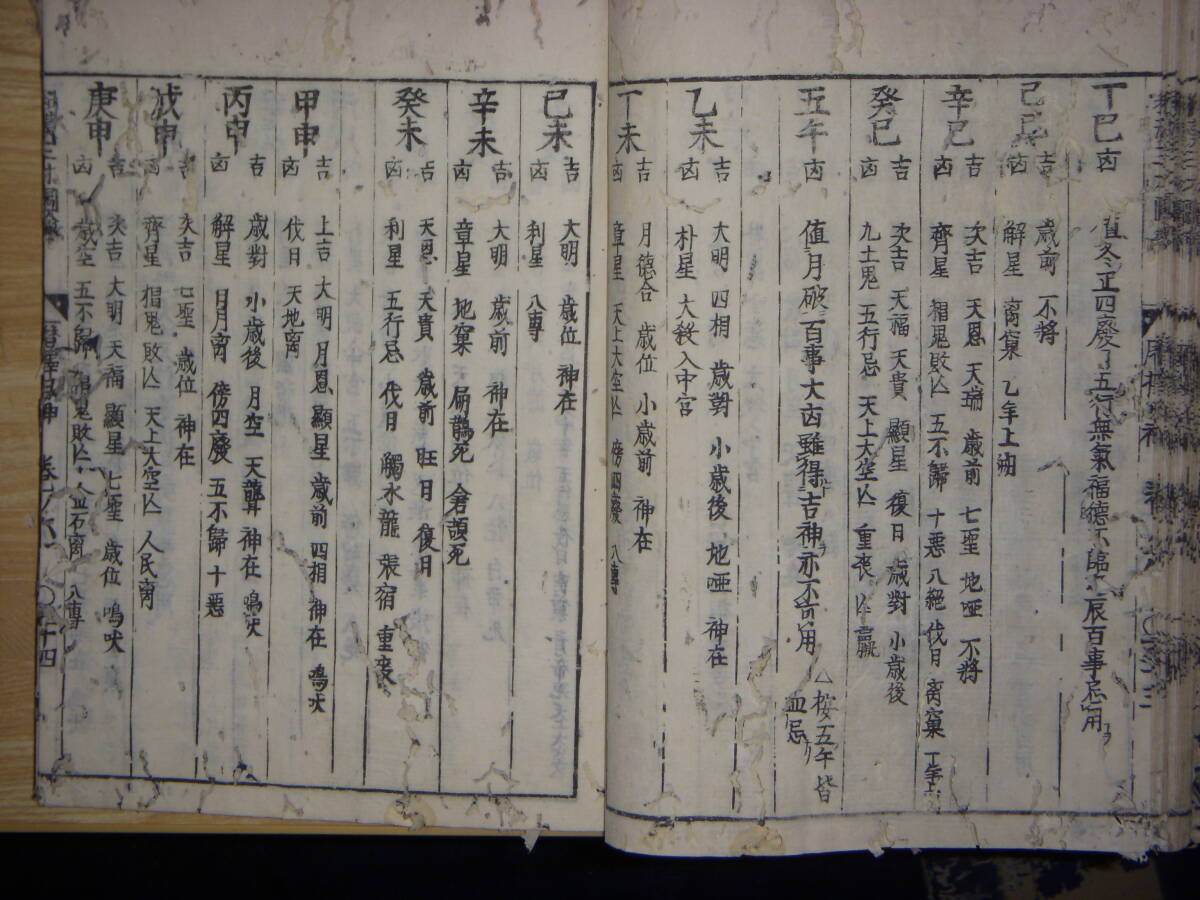 丁巳 凶 值冬正四廢了五行無氣福德不臨 辰百事忌用
己巳 吉 歲前 不將
凶 解星 离窠 乙年上朔
辛巳 吉 次吉 天恩 天瑞 歲前 七聖 地啞 不將
凶 齊星 相鬼敗亾 五不歸 十惡 八絕 伐日 离窠
癸巳 吉 次吉 天福 天貴 顯星 復日 歲對 小歲後
凶 九土鬼 五行忌 天上大空亾 重喪
五午 凶 值月破百事大凶雖得吉神亦不可用 △按五午皆
血忌
乙未 吉 大明 四相 歲對 小歲後 地啞 神在
凶 朴星 大殺入中宮
丁未 吉 月德合 歲位 小歲前 神在
凶 章星 天上大空亾 傍四廢 八專
己未 吉 大明 歲位 神在
凶 利星 八專
辛未 吉 大明 歲前 神在
凶 章星 地窠 扁鵲死 倉頡死
癸未 吉 天恩 天貴 歲前 旺日 復日
凶 利星 五行忌 伐日 觸水龍 張宿 重喪
甲申 吉 上吉 大明 月恩 顯星 歲前 四相 神在 鳴吠
凶 伐日 天地离
丙申 吉 歲對 小歲後 月空 天聾 神在 鳴吠
凶 解星 日月离 傍四廢 五不歸 十惡
戊申 吉 次吉 七聖 歲位 神在
凶 齊星 相鬼敗亾 天上大空亾 人民离
庚申 吉 次吉 大明 天福 顯星 七聖 歲位 鳴吠
凶 歲空 五不歸 鬼敗亾 金石离 八專
十四